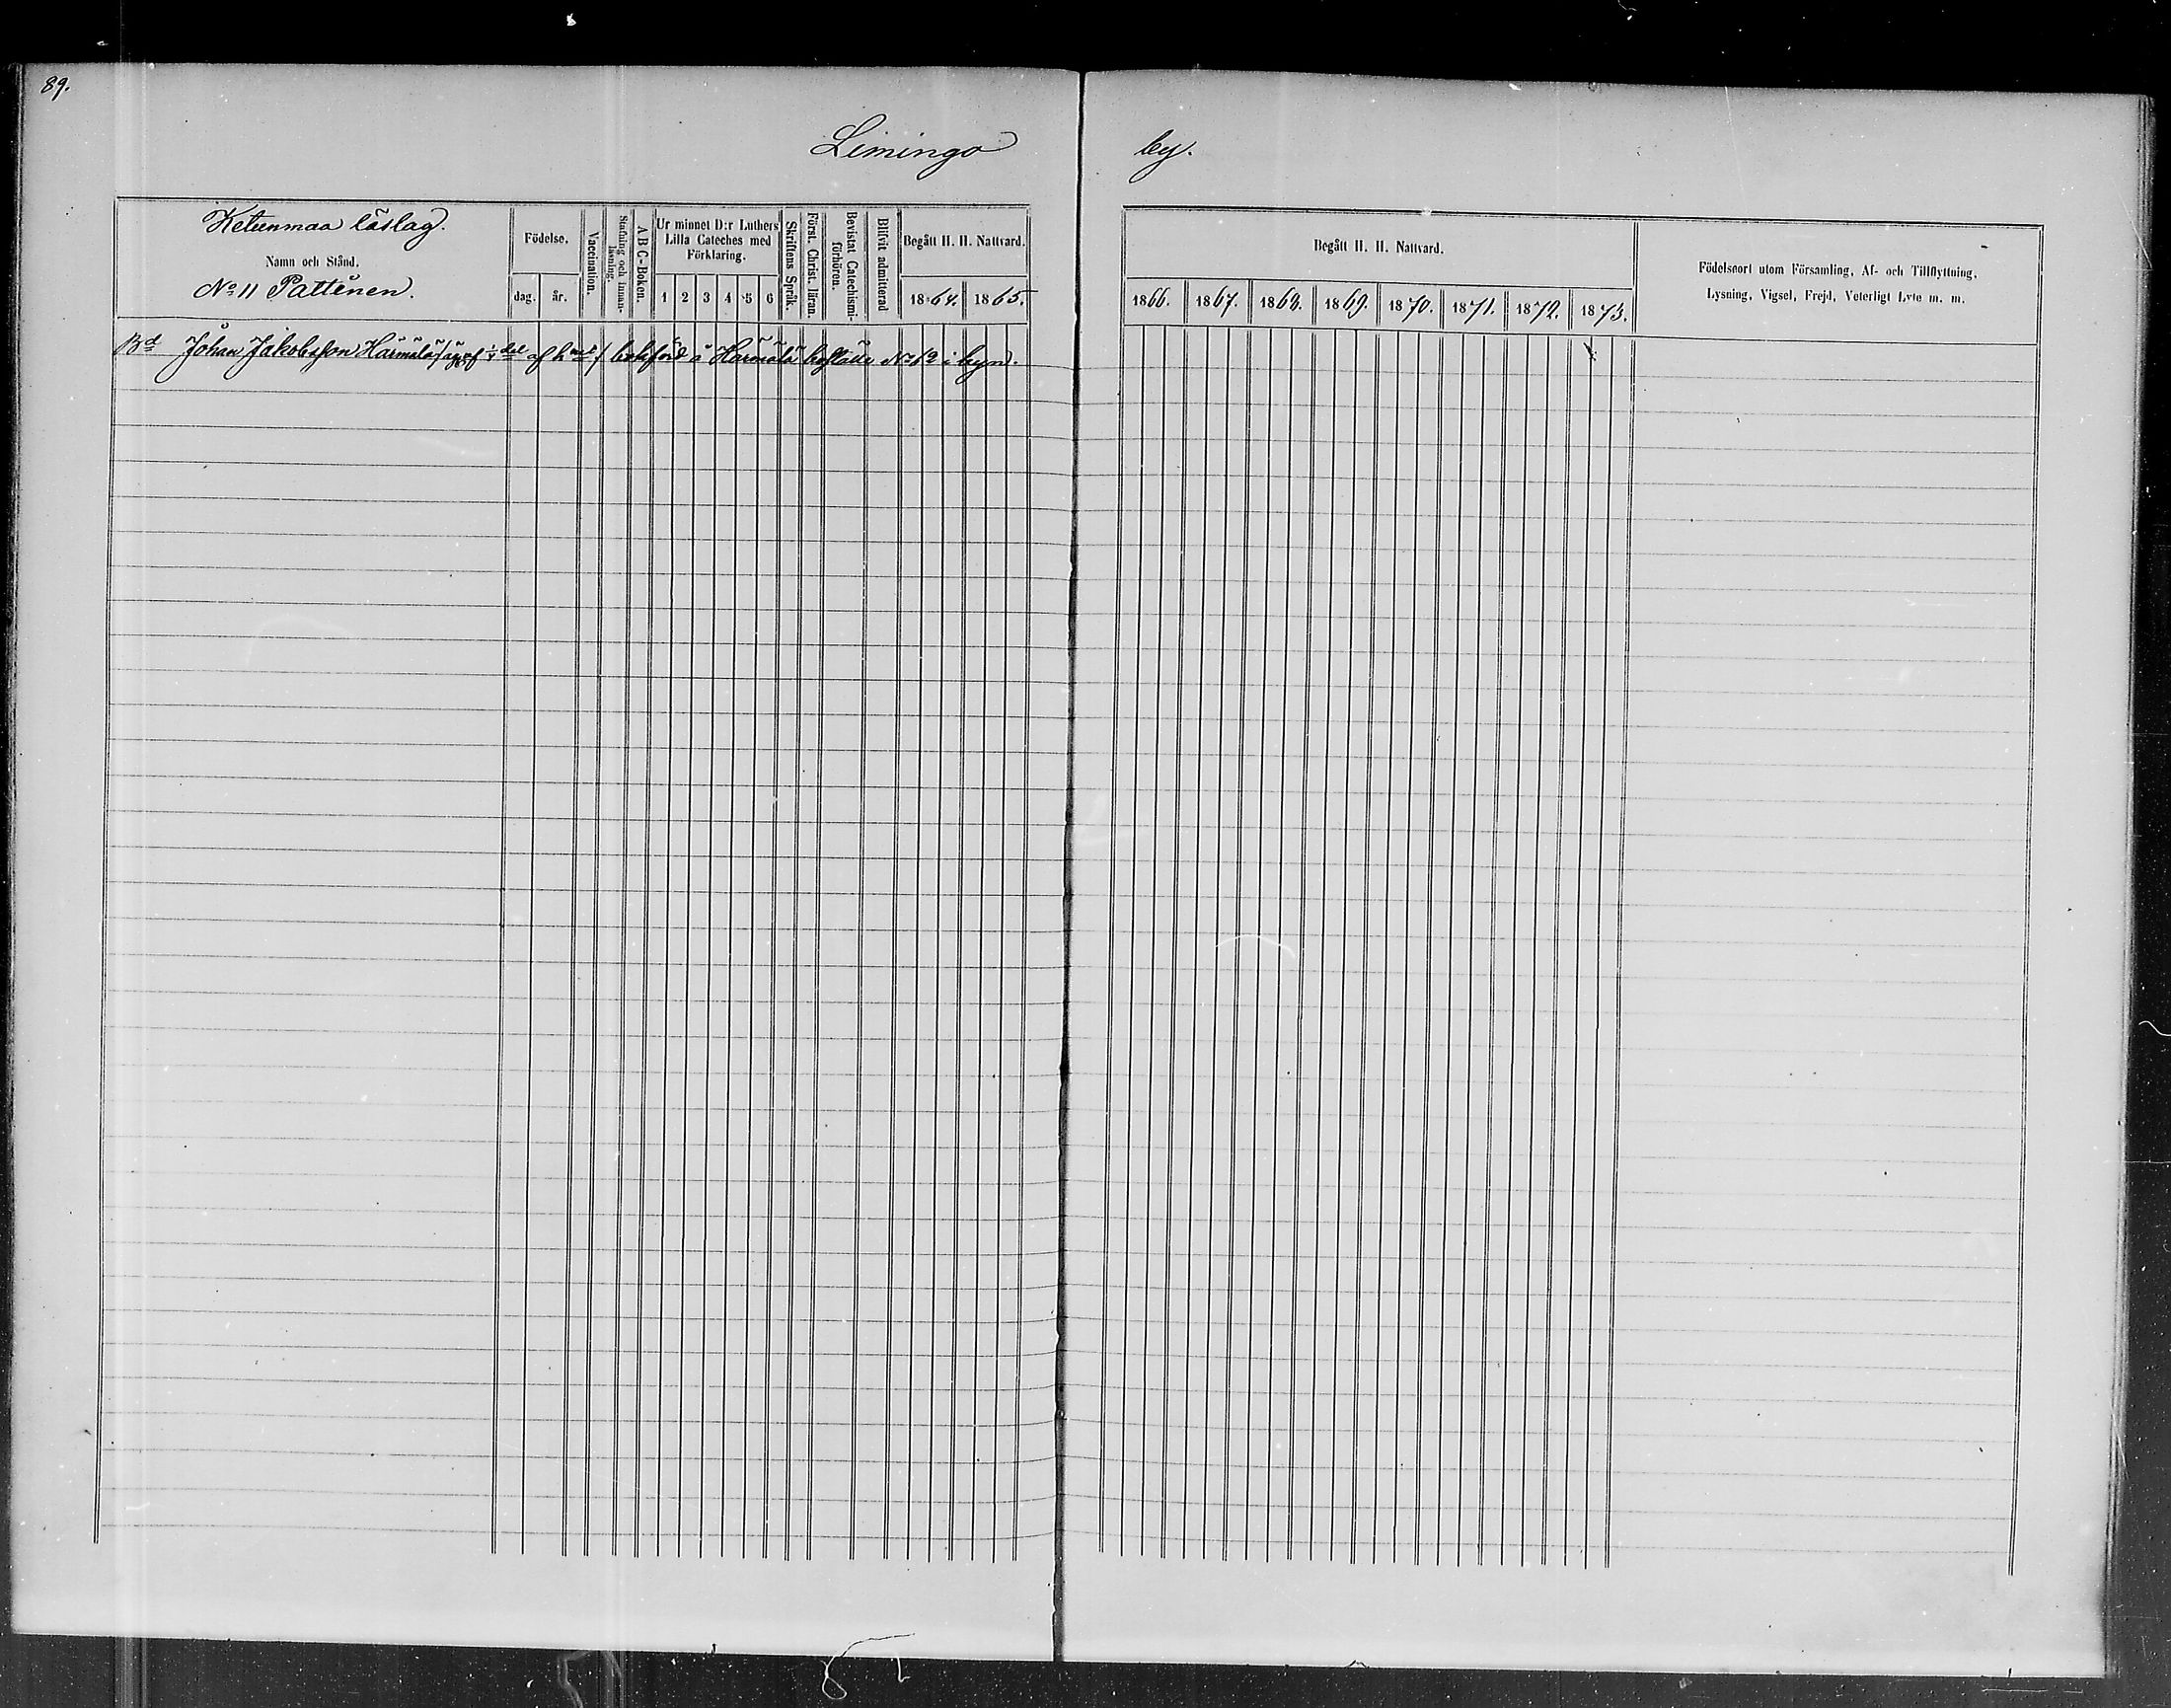 89.
Limingo by.
Ketunmaa läslag.
Namn och Stånd.
No 11 Pattenen.
Födelse.
dag. år.
Vaccination.
Stafning och innan-läsning.
A B C-Boken.
Ur minnet D:r Luthers
Lilla Cateches med
Förklaring.
1 2 3 4 5 6
Skriftens Språk.
Först. Christ. läran.
Bevistat Catechismi-förhören.
Blifvit admitterad
Begått H. H. Nattvard.
1864. 1865.
Begått H. H. Nattvard.
1866. 1867. 1868. 1869. 1870. 1871. 1872. 1873.
Födelseort utom Församling, Af- och Tillflyttning,
Lysning, Vigsel, Frejd, Veterligt Lyte m. m.
Bd Johan Jakobsson Härmälä del af bokförd å Härmälä No 12 i byn.